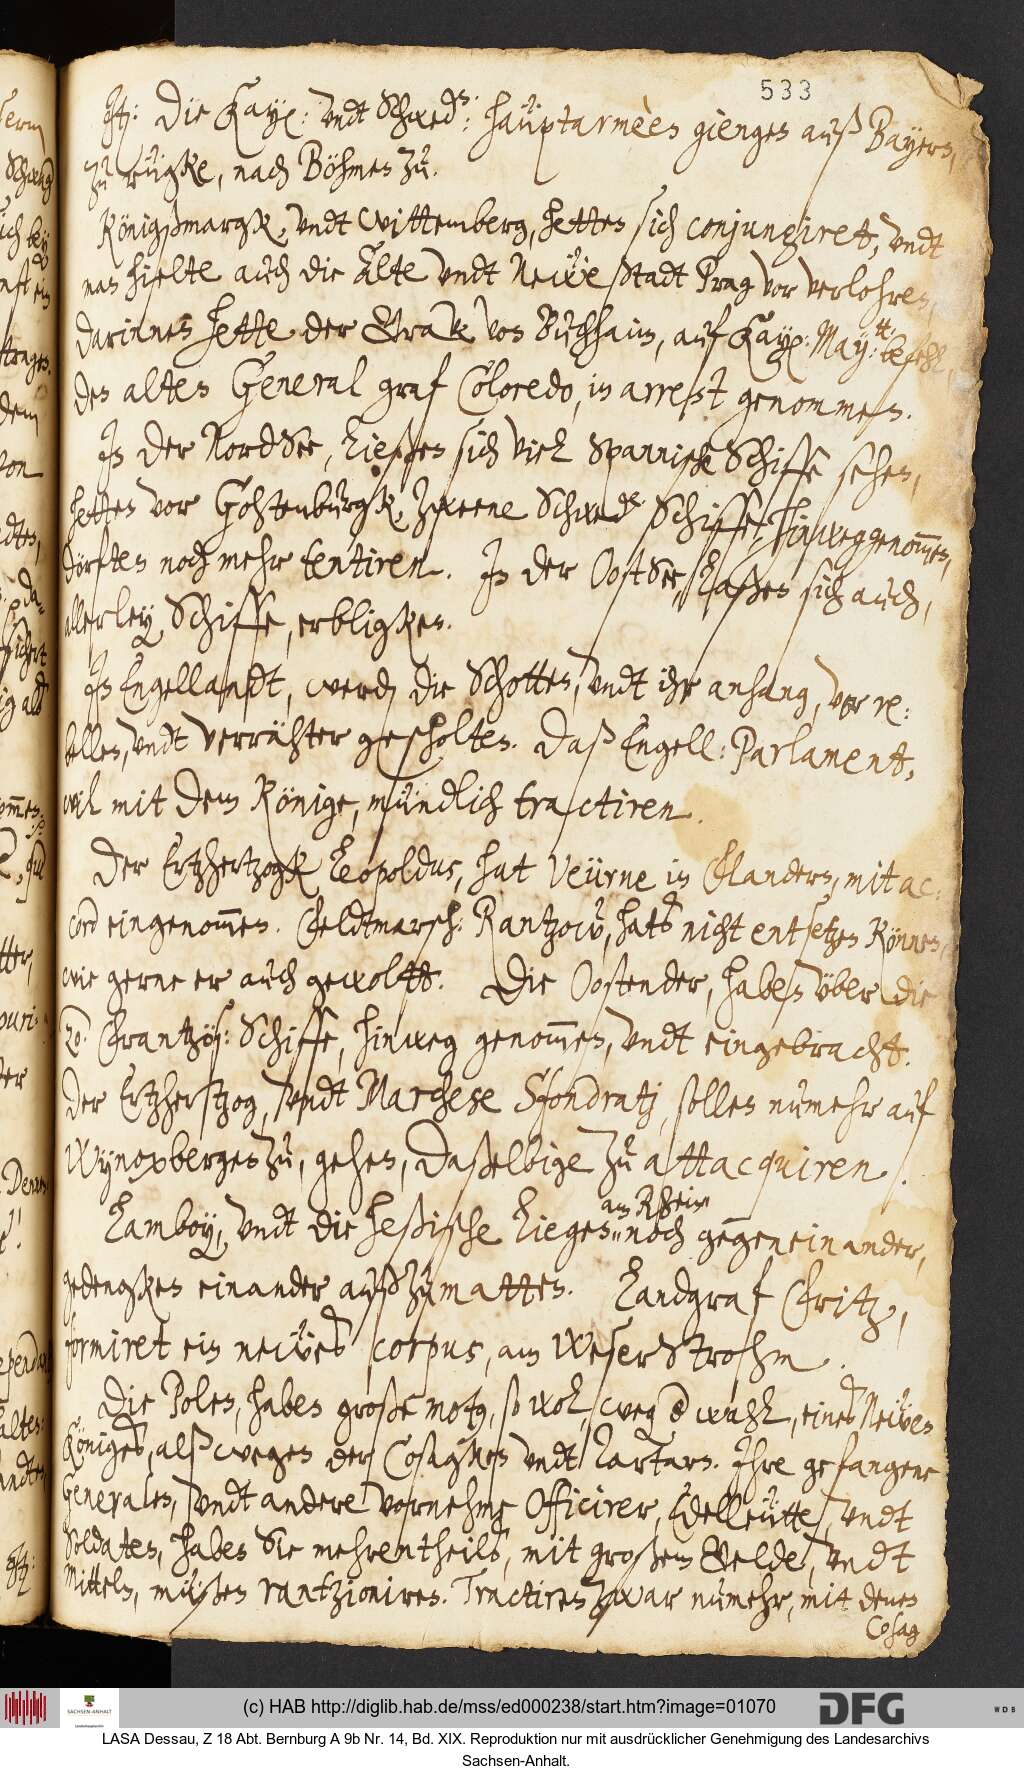 533
Itz: Die Kayß: vndt Schwed: haüptarmèen giengen auß Bayern,
zu rügke, nach Böhmen zü.
Königßmargk, vndt Wittemberg, hetten sich conjungiret, vndt
man hielte auch die Alte vndt Newe Stadt Prag vor verlohren,
darinnen hette der Graf von Buchhaim, auf Kayß: May:tt befehl,
den alten General graf Coloredo, in arrest genommen.
In der NordSee, ließen sich viel Spannische Schiffe sehen,
hetten vor Gohtenburgk, zweene Schwed: Schiffe, hinweggenommen,
dörften noch mehr tentiren. In der OostSee, laßen sich auch,
allerley Schiffe, erbligken.
In Engellandt, werden die Schotten, vndt ihr anhang, vor re:
bellen, vndt verrähter gescholten. Daß Engell: Parlament,
wil mit dem Könige, mündlich tractiren.
Der Ertzhertzogk Leopoldus, hat Veürne in Flandern, mit ac:
cord eingenommen. Feldtmarsch: Rantzow, hats nicht entsetzen können,
wie gerne er auch gewoltt. Die Oostender, haben über die
20. Frantzös: Schiffe, hinweg genommen, vndt eingebracht.
Der Ertzhertzog, vndt Marchese Sfondratj, sollen nümehr auf
Wynoxbergen zü, gehen, daßelbige zü attacquiren.
Lamboy, vndt die Heßische liegen am Rhein noch gegeneinander,
gedengken einander außzümatten. Landgraf Fritz,
formiret ein newes corpus, am WeserStrohm.
Die Polen, haben große noht, so wol, wegen der wahl, eines Newen
Königes, alß wegen der Cosagken vndt Tartarn. Ihre gefangene
Generales, vndt andere vornehme Officirer, Edelleütte, vndt
Soldaten, haben Sie mehrentheils, mit großem Gelde, vndt
Mitteln, müßen rantzioniren. Tractiren zwar nümehr, mit denen
Cosag
(c) HAB http://diglib.hab.de/mss/ed000238/start.htm?image=01070
SACHSEN-ANHALT
DFG
WDB
LASA Dessau, Z 18 Abt. Bernburg A 9b Nr. 14, Bd. XIX. Reproduktion nur mit ausdrücklicher Genehmigung des Landesarchivs
Sachsen-Anhalt.